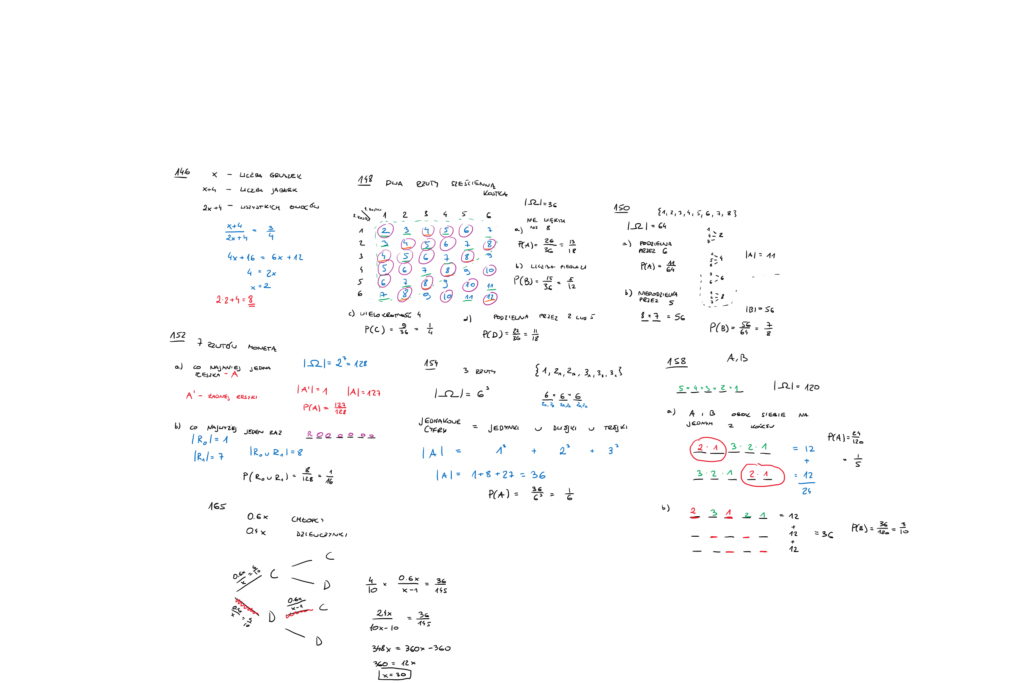 146
x – LICZBA GRUSZEK
x+4 – LICZBA JABŁEK
2x+4 – WSZYSTKICH OWOCÓW
x+4 / 2x+4 = 3/4
4x+16 = 6x+12
4 = 2x
x=2
2·2+4=8
148 DWA RZUTY SZEŚCIENNĄ
KOSTKĄ
1 2 3 4 5 6
1 2 3 4 5 6 7
2 3 4 5 6 7 8
3 4 5 6 7 8 9
4 5 6 7 8 9 10
5 6 7 8 9 10 11
6 7 8 9 10 11 12
|Ω|=36
a) NIE WIĘKSZA
NIŻ 8
P(A)= 26/36 = 13/18
b)
P(B)= 15/36 = 5/12
c) WIELOKROTNOŚĆ 4
P(C) = 9/36 = 1/4
d) PODZIELNA PRZEZ 2 LUB 5
P(D)= 22/36 = 11/18
150 {1, 2, 3, 4, 5, 6, 7, 8}
|Ω|= 64
a) PODZIELNA
PRZEZ 6
P(A)= 11/64
|A|= 11
b) NIEPODZIELNA
PRZEZ 5
8 · 7 = 56
|B|=56
P(B)= 56/64 = 7/8
152 7 RZUTÓW MONETĄ
a) CO NAJMNIEJ JEDNA
RESZKA – A
|Ω|= 2⁷ = 128
A' – ŻADNEJ RESZKI
|A'|=1 |A|=127
P(A)= 127/128
b) CO NAJWYŻEJ JEDEN RAZ
R O O O O O O
|R₀|= 1
|R₁|= 7
|R₀∪R₁|=8
P(R₀∪R₁)= 8/128 = 1/16
154 3 RZUTY {1, 2ₐ, 2ᵦ, 3ₐ, 3ᵦ, 3c}
|Ω|= 6³
6 · 6 · 6
JEDNAKOWE
CYFRY = JEDYNKI ∪ DWÓJKI ∪ TRÓJKI
|A| = 1³ + 2³ + 3³
|A|= 1+8+27 = 36
P(A) = 36/6³ = 1/6
158 A, B
5·4·3·2·1 |Ω|= 120
a) A i B OBOK SIEBIE NA
JEDNYM Z KOŃCÓW
2 · 1 3 · 2 · 1 = 12
+
3 · 2 · 1 2 · 1 = 12
24
P(A)= 24/120
= 1/5
b) 2 3 1 2 1 = 12
+
12 = 36
+
12
P(B)= 36/120 = 3/10
165
0.6x CHŁOPCY
0.4x DZIEWCZYNKI
C
C
D
D
C
D
4/10 × 0.6x/x-1 = 36/145
2.4x/10x-10 = 36/145
348x = 360x – 360
360 = 12x
x=30